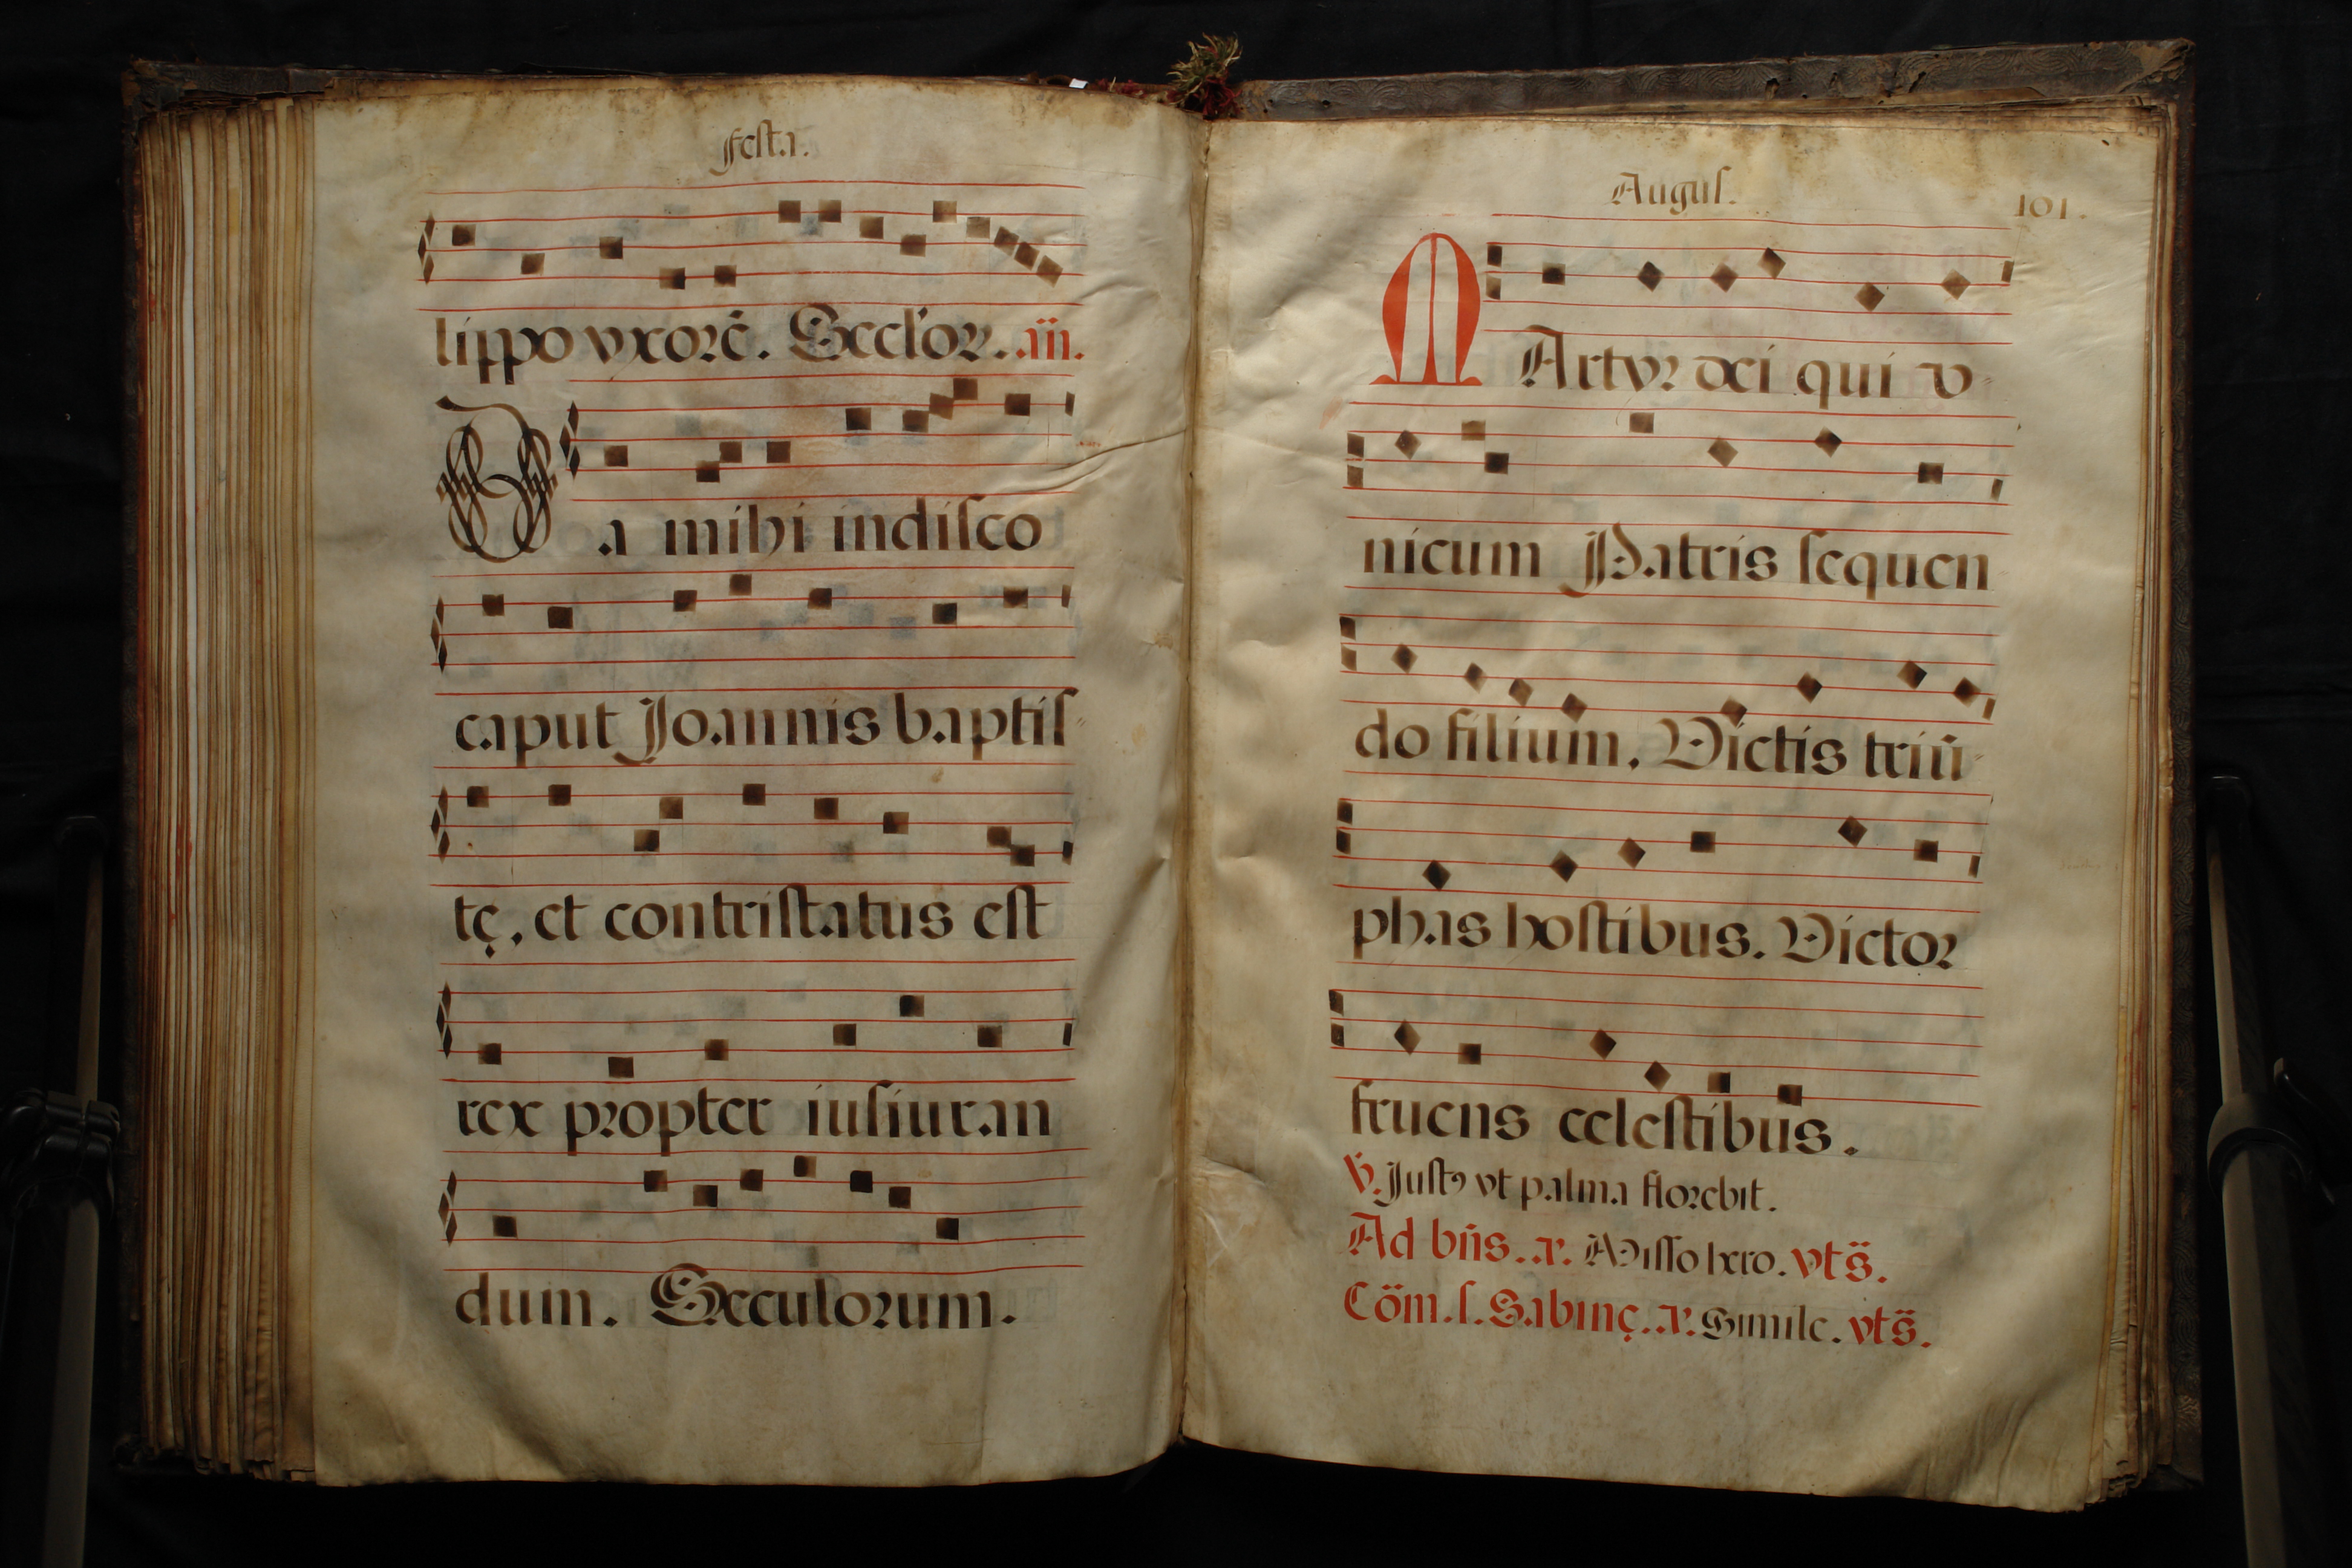 Festa.
lippo vxorē. Seclor. añ.
Da mihi in disco
caput Joannis baptis
tę, et contristatus est
rex propter iusiuran
dum. Sæculorum.
Augus. 101.
MArtyr dei qui v
nicum Patris sequen
do filium. Victis triū
phas hostibus. Victor
fruens celestibus.
V̈. Justꝰ vt palma florebit.
Ad bñs. a. Misso hero. vts̈.
Cöm. s. Sabinę. a. Simile. vts̈.